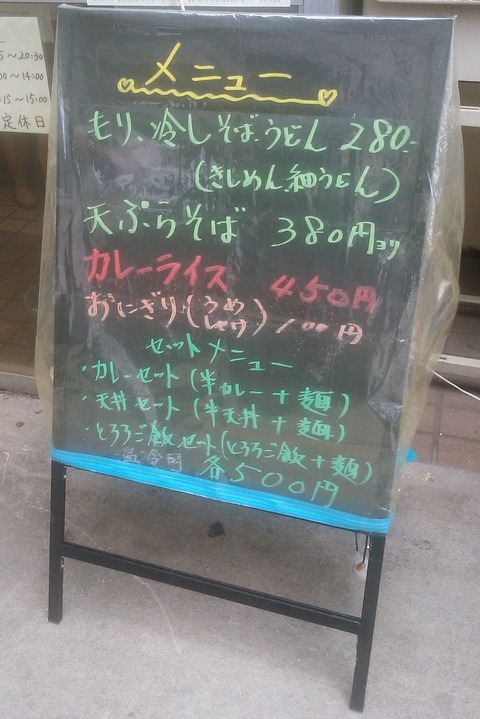 5～20:30
00～14:00
:15～15:00
定休日
メニュー
もり、冷しそば.うどん 280.-
(きしめん細うどん)
天ぷらそば 380円ヨリ
カレーライス 450円
おにぎり(うめ しゃけ)100円
セットメニュー
・カレーセット(半カレー+麺)
・天丼セット(半天丼+麺)
・とろろご飯セット(とろろご飯+麺)
温冷同 各500円